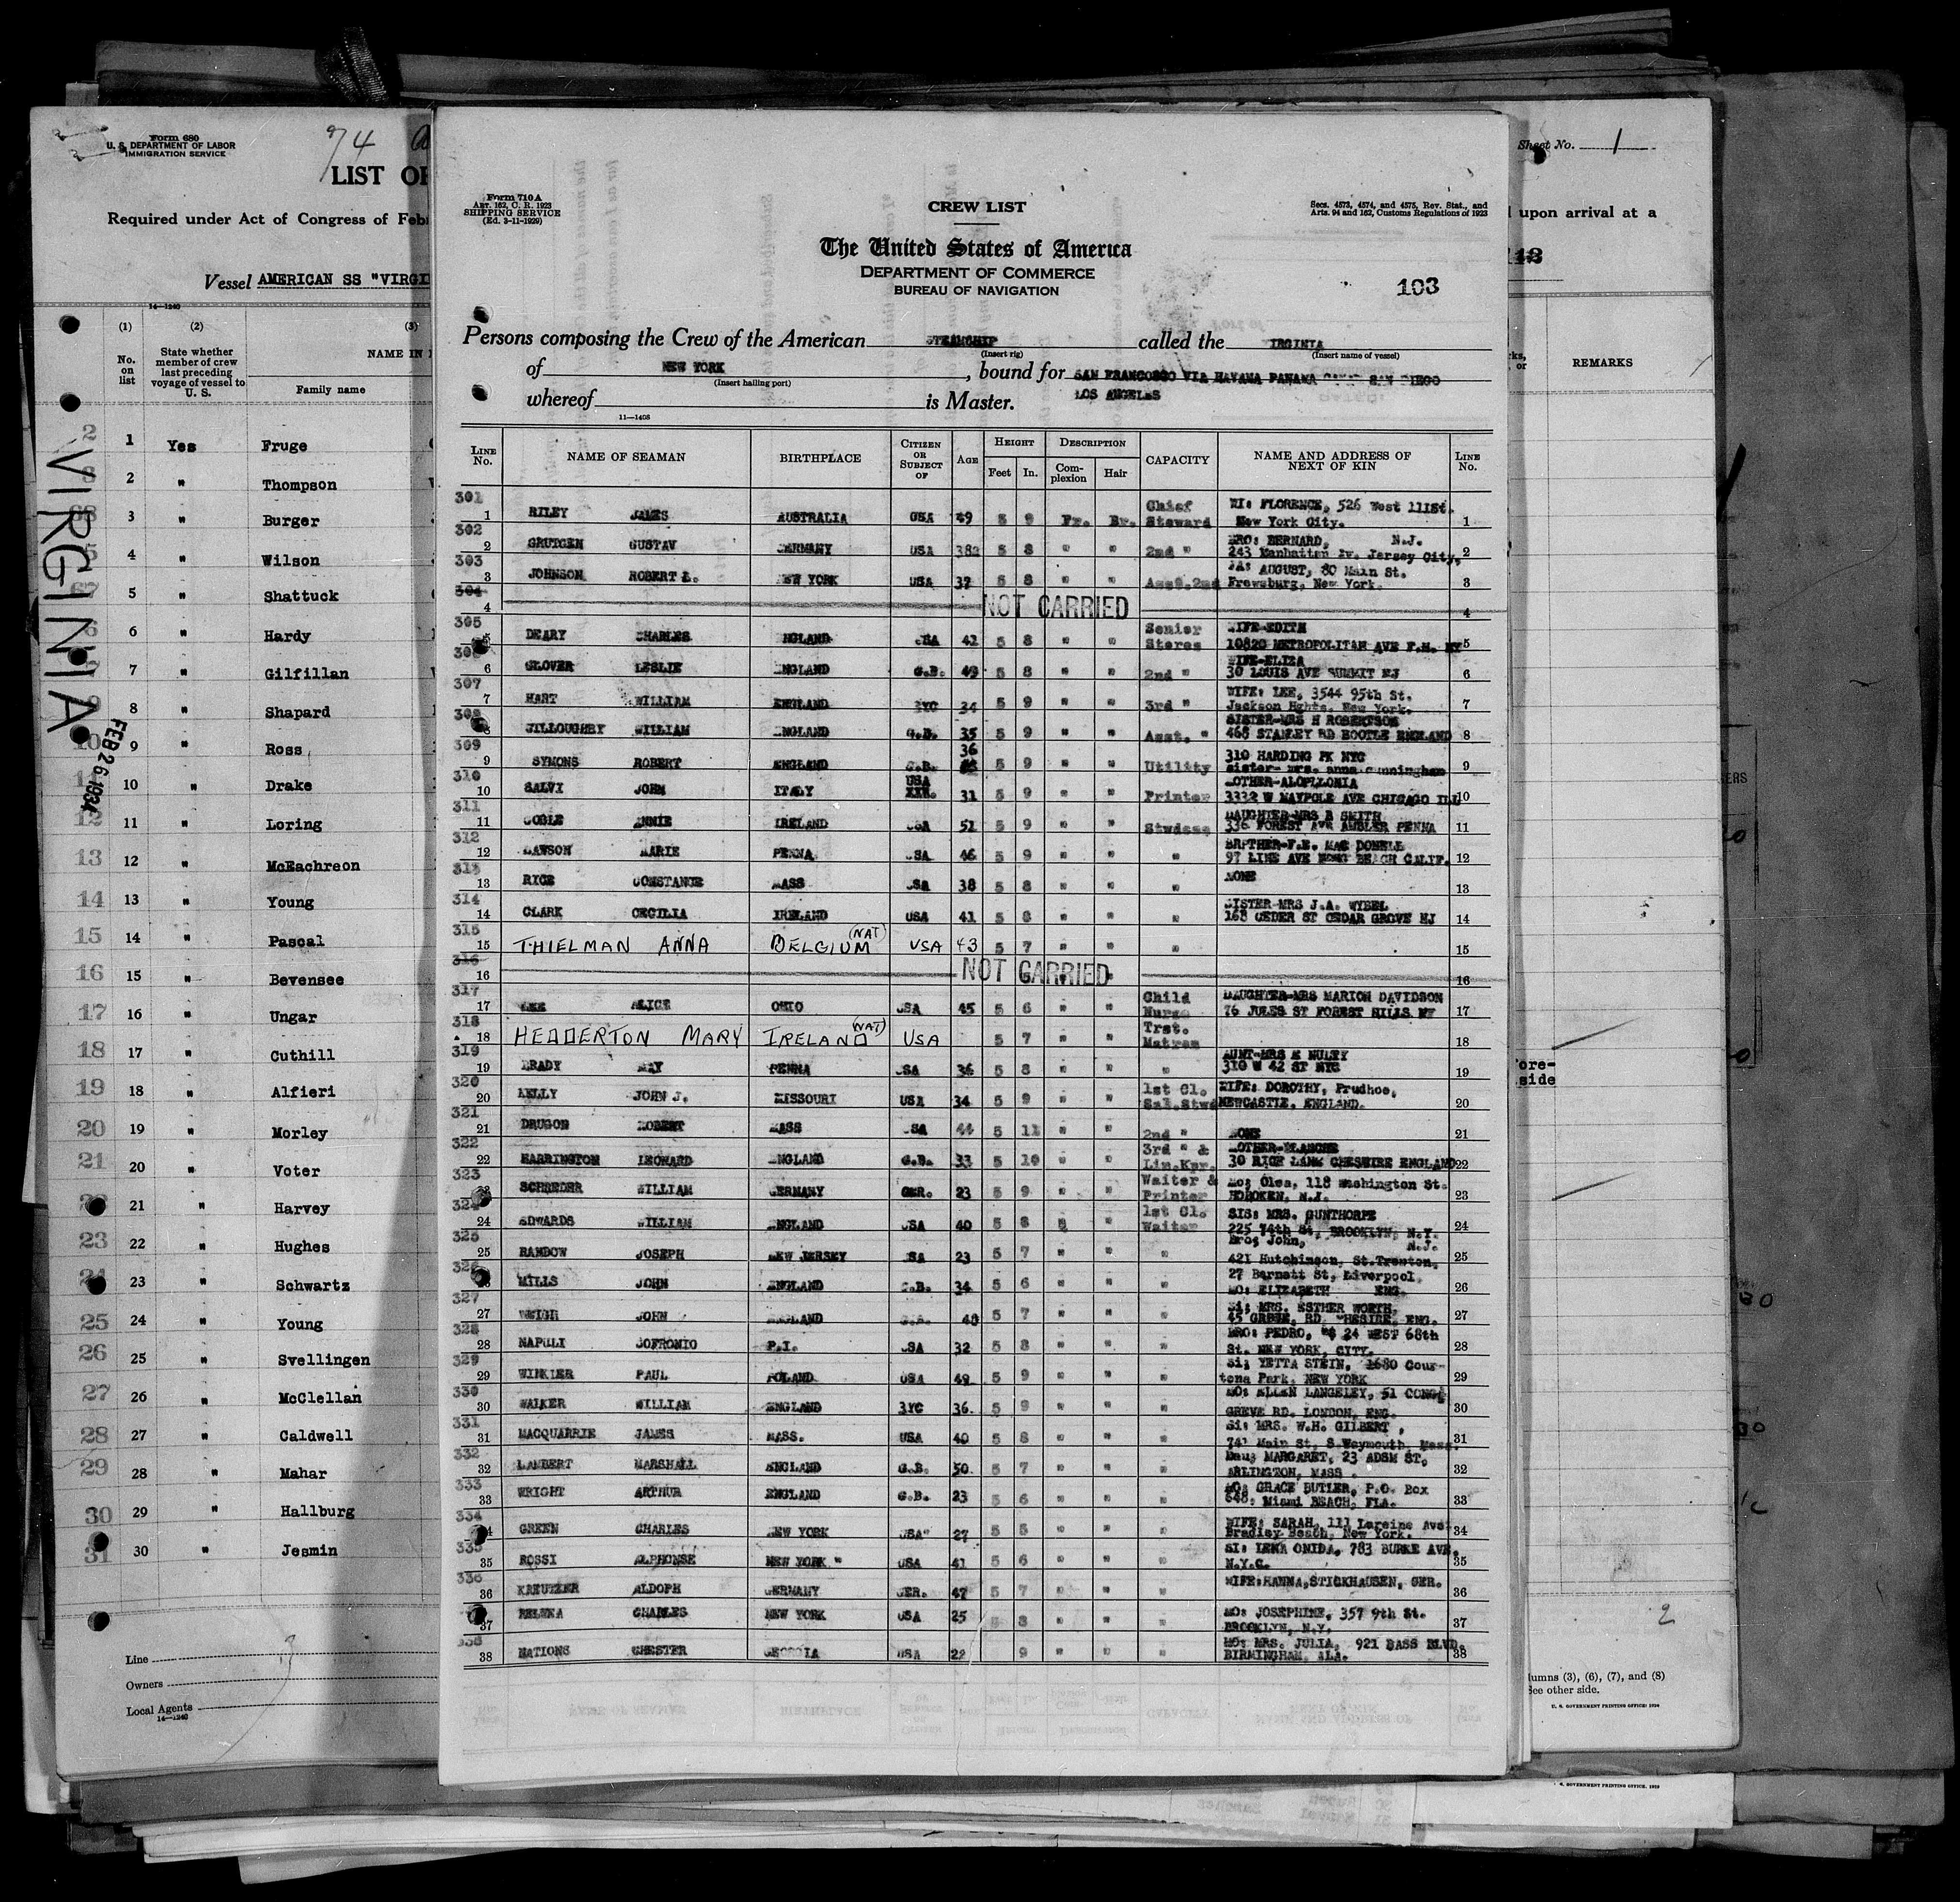 Form 680
U. S. DEPARTMENT OF LABOR
IMMIGRATION SERVICE
74
LIST OF
Required under Act of Congress of Feb
Vessel AMERICAN SS "VIRGI
14—1240
(1) (2) (3)
No. on list
State whether member of crew last preceding voyage of vessel to U. S.
NAME IN
Family name
2 1 Yes Fruge
2 " Thompson
3 " Burger
5 4 " Wilson
5 " Shattuck
6 6 " Hardy
7 7 " Gilfillan
9 8 " Shapard
10 9 " Ross
11 10 " Drake
12 11 " Loring
13 12 " McEachreon
14 13 " Young
15 14 " Pascal
16 15 " Bevensee
17 16 " Ungar
18 17 " Cuthill
19 18 " Alfieri
20 19 " Morley
21 20 " Voter
21 " Harvey
23 22 " Hughes
24 23 " Schwartz
25 24 " Young
26 25 " Svellingen
27 26 " McClellan
28 27 " Caldwell
29 28 " Mahar
30 29 " Hallburg
31 30 " Jesmin
Line
Owners
Local Agents
14—1240
VIRGINIA
FEB 26 1934
Form 710 A
Art. 162, C. R. 1923
SHIPPING SERVICE
(Ed. 3-11-1929)
CREW LIST
Secs. 4573, 4574, and 4575, Rev. Stat., and
Arts. 94 and 162, Customs Regulations of 1923
The United States of America
DEPARTMENT OF COMMERCE
BUREAU OF NAVIGATION
103
Persons composing the Crew of the American STEAMSHIP called the VIRGINIA
(Insert rig) (Insert name of vessel)
of NEW YORK, bound for SAN FRANCOSCO VIA HAVANA PANAMA CANAL SAN DIEGO
(Insert hailing port)
LOS ANGELES
whereof is Master.
11—1408
LINE No. NAME OF SEAMAN BIRTHPLACE CITIZEN OR SUBJECT OF AGE HEIGHT Feet In. DESCRIPTION Complexion Hair CAPACITY NAME AND ADDRESS OF NEXT OF KIN LINE No.
301 1 RILEY JAMES AUSTRALIA USA 49 5 9 Fr. Br. Chief Steward WI: FLORENCE, 526 West 111St. New York City. 1
302 2 GRUTGEN GUSTAV GERMANY USA 382 5 8 " " 2nd " BRO: BERNARD, N.J. 243 Manhattan Av. Jersey City, 2
303 3 JOHNSON ROBERT E. NEW YORK USA 37 5 8 " " Asst.2nd FA: AUGUST, 80 Main St. Frewsburg, New York. 3
304 4 NOT CARRIED 4
305 5 DEARY CHARLES ENGLAND USA 42 5 8 " " Senior Stores WIFE-EDITH 10820 METROPOLITAN AVE F.H. NY 5
306 6 GLOVER LESLIE ENGLAND G.B. 49 5 8 " " 2nd " WIFE-ELIZA 30 LOUIS AVE SUMMIT NJ 6
307 7 HART WILLIAM ENGLAND 34 5 9 " " 3rd " WIFE: LEE, 3544 95th St. Jackson Hghts. New York. 7
308 8 WILLOUGHBY WILLIAM ENGLAND G.B. 35 5 9 " " Asst. " SISTER-MRS H ROBERTSON 468 STANLEY RD BOOTLE ENGLAND 8
309 9 SYMONS ROBERT ENGLAND G.B. 36 5 9 " " Utility 310 HARDING PK NYC sister- mrs. anna cunningham 9
310 10 SALVI JOHN ITALY USA 31 5 9 " " Printer MOTHER-ALOPLLONIA 3332 W MAYPOLE AVE CHICAGO ILL 10
311 11 GOBLE ANNIE IRELAND USA 51 5 9 " " Stwdess DAUGHTER-MRS B SMITH 336 FOREST AVE AMBLER PENNA 11
312 12 DAWSON MARIE PENNA USA 46 5 9 " " " BRPTHER-F.E. MAC DONELL 97 LIME AVE LONG BEACH CALIF. 12
313 13 RICE CONSTANCE MASS USA 38 5 8 " " " NONE 13
314 14 CLARK CECILIA IRELAND USA 41 5 8 " " " SISTER-MRS J.A. WYBEL 168 CEDER ST CEDAR GROVE NJ 14
315 15 THIELMAN ANNA BELGIUM (NAT) USA 43 5 7 " " " 15
316 16 NOT CARRIED 16
317 17 LEE ALICE OHIO USA 45 5 6 " " Child Nurse DAUGHTER-MRS MARION DAVIDSON 76 JULES ST FOREST HILLS NY 17
318 18 HEDDERTON MARY IRELAND (NAT) USA 5 7 " " Trst. Matron 18
319 19 BRADY MAY PENNA USA 36 5 8 " " " AUNT-MRS K NULTY 310 W 42 ST NYC 19
320 20 KELLY JOHN J. MISSOURI USA 34 5 9 " " 1st Cl. Sal.Stwd WIFE: DOROTHY, Prudhoe, NEWCASTLE, ENGLAND. 20
321 21 DRUGON ROBERT MASS USA 44 5 11 " " 2nd " NONE 21
322 22 HARRINGTON LEONARD ENGLAND G.B. 33 5 10 " " 3rd " & Lin.Kpr. MOTHER-BLANCHE 30 RICE LANE CHESHIRE ENGLAND 22
323 23 SCHREDER WILLIAM GERMANY GER. 23 5 9 " " Waiter & Printer Mo; Olga, 118 Washington St. HOBOKEN, N.J. 23
324 24 EDWARDS WILLIAM ENGLAND USA 40 5 8 " " 1st Cl. Waiter SIS: MRS. GUNTHORPE 225 74th St, BROOKLYN, N.Y. 24
325 25 RANDOW JOSEPH NEW JERSEY USA 23 5 7 " " " Bro; John, N.J. 421 Hutchinson, St.Trenton, 25
326 26 MILLS JOHN ENGLAND G.B. 34 5 6 " " " 27 Barnett St, Liverpool, MO: ELIZABETH ENG. 26
327 27 WEIGH JOHN ENGLAND G.B. 48 5 7 " " " Si; MRS. ESTHER WORTH, 45 RD. CHESIRE, ENG. 27
328 28 NAPULI SOFRONIO P.I. USA 32 5 8 " " " BRO: PEDRO, 24 WEST 68th St. NEW YORK, CITY. 28
329 29 WINKLER PAUL POLAND USA 49 5 9 " " " Si; YETTA STEIN, 1680 Courtona Park, NEW YORK 29
330 30 WALKER WILLIAM ENGLAND 36 5 9 " " " MO: ELLEN LANGELEY, 51 CONG GREVE RD. LONDON, ENG. 30
331 31 MACQUARRIE JAMES MASS. USA 40 5 8 " " " Si: MRS. W.H. GILBERT, 741 Main St, S.Weymouth, Mass. 31
332 32 LAMBERT MARSHALL ENGLAND G.B. 50 5 7 " " " Dau; MARGARET, 23 ADSM ST, ARLINGTON, MASS. 32
333 33 WRIGHT ARTHUR ENGLAND G.B. 23 5 6 " " " MO: GRACE BUTLER, P.O. Box 648, Miami BEACH, FLA. 33
334 34 GREEN CHARLES NEW YORK USA" 27 5 5 " " " WIFE: SARAH, 111 Lareine Ave Bradley Beach, New York. 34
335 35 ROSSI ALPHONSE NEW YORK " USA 41 5 6 " " " SI: LENA ONIDA, 783 BURKE AVE, N.Y.C. 35
336 36 KREUTZER ALDOPH GERMANY GER. 47 5 7 " " " WIFE:HANNA,STICKHAUSEN, GER. 36
37 CHARLES NEW YORK USA 25 5 8 " " " MO: JOSEPHINE, 357 9th St. BROOKLYN, N.Y. 37
338 38 NATIONS CHESTER GEORGIA USA 22 9 " " " MO: MRS. JULIA, 921 BASS BLVD. BIRMINGHAM, ALA. 38
Sheet No. 1
upon arrival at a
REMARKS
ore-
side
2
lumns (3), (6), (7), and (8)
See other side.
U. S. GOVERNMENT PRINTING OFFICE